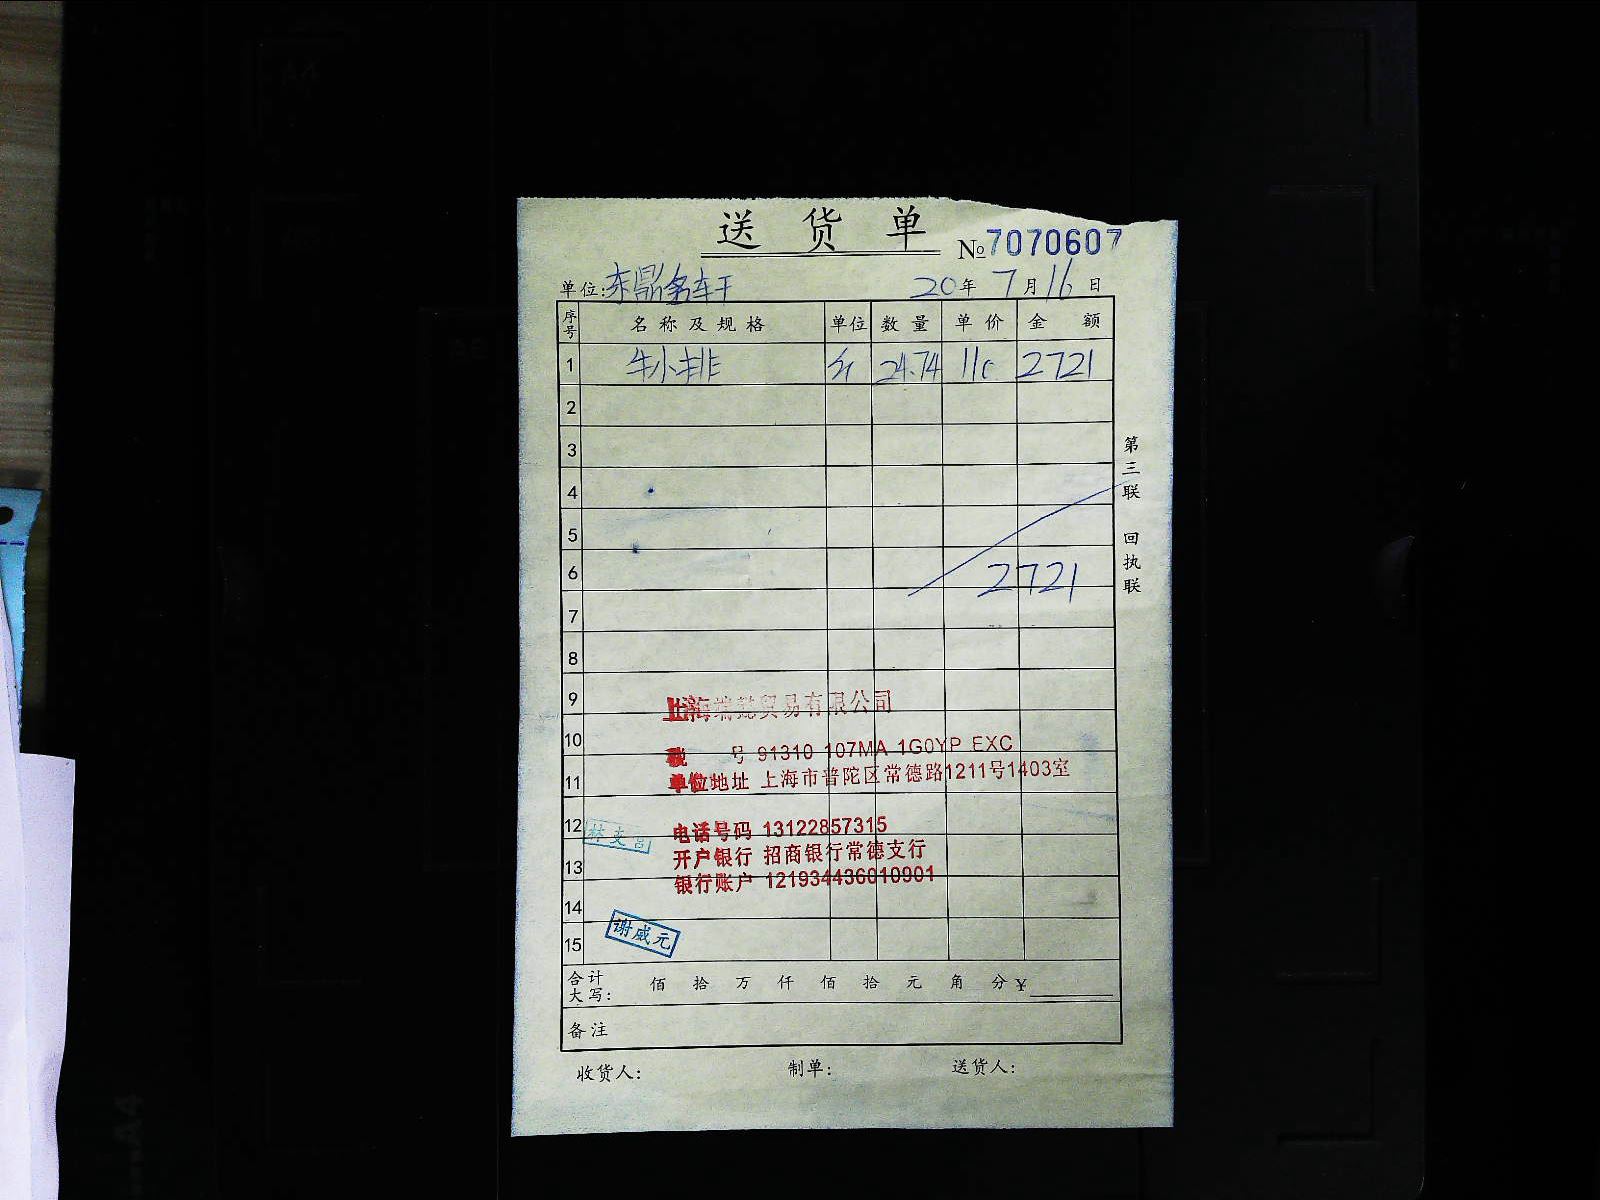 送货单
№7070607
单位:东鼎名轩 20年7月16日
序号 名称及规格 单位 数量 单价 金额
1 牛小排 斤 24.74 110 2721
2
3
4
5
6 2721
7
8
9
10
11
12
13
14
15
第三联 回执联
上海端懿贸易有限公司
税 号 91310 107MA 1G0YP EXC
单位地址 上海市普陀区常德路1211号1403室
电话号码 13122857315
开户银行 招商银行常德支行
银行账户 121934436010901
谢威元
合计大写: 佰 拾 万 仟 佰 拾 元 角 分 ¥
备注
收货人: 制单: 送货人: